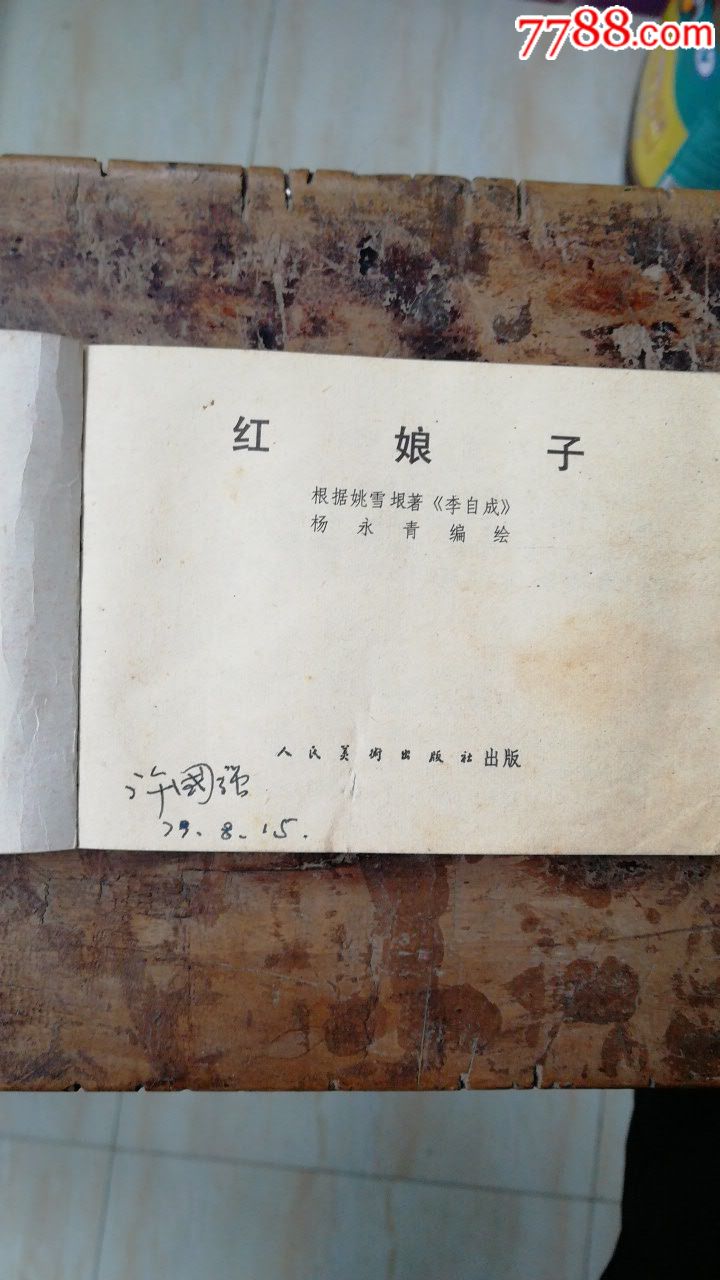 7788.com
红娘子
根据姚雪垠著《李自成》
杨永青编绘
人民美術出版社出版
许國强
79.8.15.